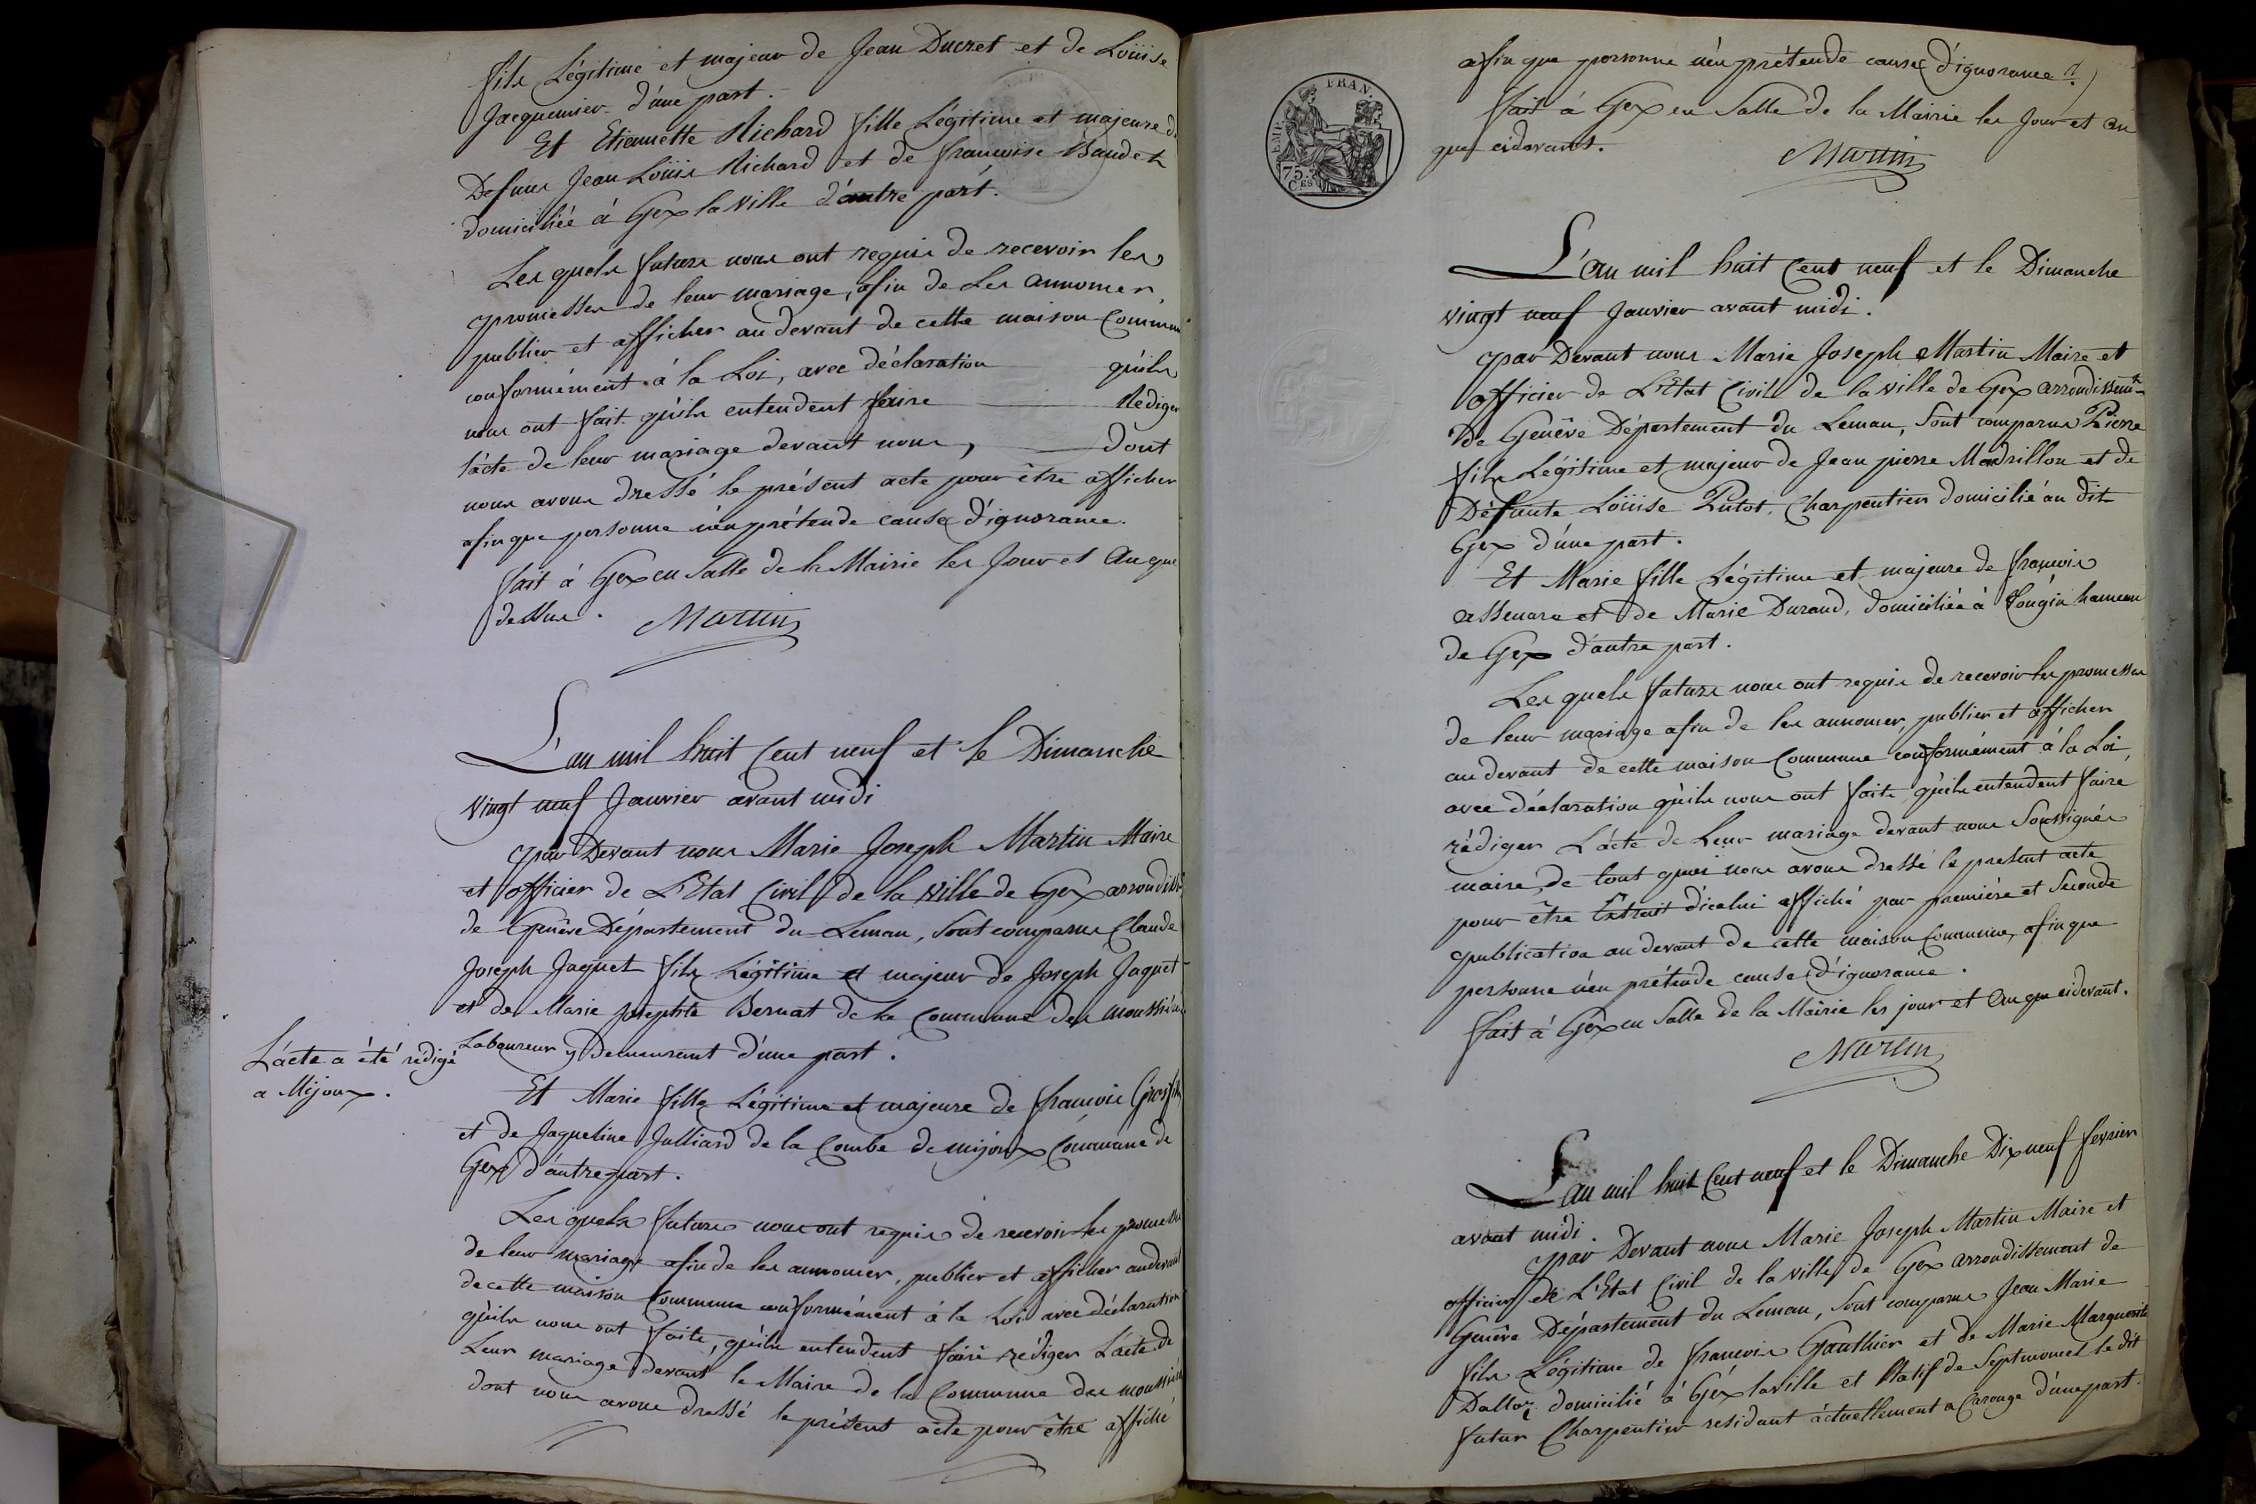 fils Légitime et majeur de Jean Ducret et de Loüise
Jacquemier d'une part.
Et Etiennette Richard fille Légitime et majeure de
Defunt Jean Loüis Richard et de françoise Baudet
domiciliée à Gex la ville d'autre part.
Les quels futurs nous ont requis de recevoir les
promesses de leur mariage, afin de Les annoncer,
publier et afficher au devant de cette maison Commune
conformément à la Loi, avec déclaration qu'ils
nous ont fait qu'ils entendent faire Rédiger
l'acte de leur mariage devant nous, dont
nous avons dressé le présent acte pour être afficher
afin que personne n'en prétende cause d'ignorance.
fait à Gex en Salle de la Mairie les Jour et An que
dessus. Martin
L'an mil huit Cent neuf et le Dimanche
vingt neuf Janvier avant midi
par Devant nous Marie Joseph Martin Maire
et officier de L'Etat Civil de la ville de Gex arrondisst
de Genêve Département du Leman, Sont comparus Claude
Joseph Jaquet fils Légitime et majeur de Joseph Jaquet
et de Marie Josephte Bernat de la Commune des moussières
Laboureur y demeurant d'une part.
L'acte a été rédigé
a Mijoux.
Et Marie fille Légitime et majeure de françois Grosfils
et de Jaqueline Julliard de la Combe de mijoux Commune de
Gex d'autre part.
Les quels futurs nous ont requis de recevoir les promesses
de leur mariage afin de les annoncer, publier et afficher au devant
de cette maison Commune conformément à la Loi avec déclaration
qu'ils nous ont faite, qu'ils entendent faire rédiger L'acte de
Leur mariage devant le Maire de la Commune des moussières
dont nous avons dressé le présent acte pour être affiché
afin que personne n'en prétende cause d'ignorance
fait à Gex en Salle de la Mairie les Jour et an
que cidevant. Martin
EMP. FRAN.
75.
CES
L'an mil huit Cent neuf et le Dimanche
vingt neuf Janvier avant midi.
par Devant nous Marie Joseph Martin Maire et
officier de L'Etat Civil de la ville de Gex arrondissemt
De Genêve Département du Leman, Sont comparus Pierre
fils Légitime et majeur de Jean pierre Modrillon et de
Défunte Loüise Putot, Charpentier domicilié au dit
Gex d'une part.
Et Marie fille Légitime et majeure de françois
et de Marie Durand, domiciliée à Tougin hameau
de Gex d'autre part.
Les quels futurs nous ont requis de recevoir les promesses
de leur mariage afin de les annoncer, publier et afficher
au devant de cette maison Commune conformément à la Loi
avec déclaration qu'ils nous ont faite qu'ils entendent faire
rédiger L'acte de Leur mariage devant nous Soussignés
maire, de tout quoi nous avons dressé le present acte
pour être Extrait d'icelui affiché par première et Seconde
publication au devant de cette maison Commune, afin que
personne n'en prétende cause d'ignorance.
fait à Gex en Salle de la Mairie les jour et An que cidevant.
Martin
L'an mil huit Cent neuf et le Dimanche Dix neuf fevrier
avant midi.
par Devant nous Marie Joseph Martin Maire et
officier de L'Etat Civil de la ville de Gex arrondissement de
Genêve Département du Leman, Sont comparus Jean Marie
fils Légitime de françois Gauthier et de Marie Marguerite
Dalloz domicilié à Gex la ville et Natif de Septmoncel le dit
futur Charpentier residant actuellement a Carouge d'une part.